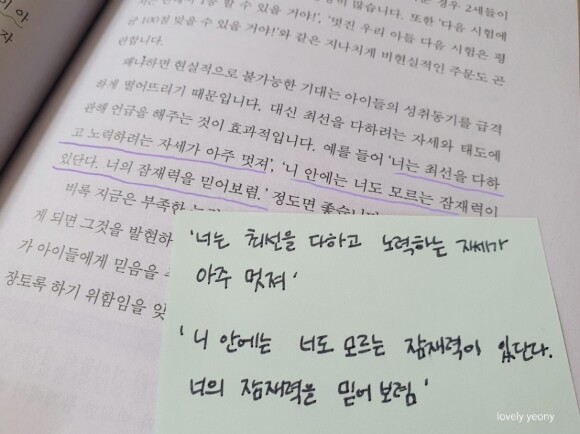 이 아
자
경우 2세들이
'멋진 우리 아들 다음 시험은 평
균 100점 맞을 수 있을 거야!'와 같은 지나치게 비현실적인 주문도 곤
란합니다.
왜냐하면 현실적으로 불가능한 기대는 아이들의 성취동기를 급격
하게 떨어뜨리기 때문입니다. 대신 최선을 다하려는 자세와 태도에
관해 언급을 해주는 것이 효과적입니다. 예를 들어 '너는 최선을 다하
고 노력하려는 자세가 아주 멋져', '니 안에는 너도 모르는 잠재력이
있단다. 너의 잠재력을 믿어보렴.' 정도면 좋습니다
비록 지금은 부족한
게 되면 그것을 발현하
가 아이들에게 믿음을
장토록 하기 위함임을 잊
'너는 최선을 다하고 노력하는 자세가
아주 멋져'
'니 안에는 너도 모르는 잠재력이 있단다.
너의 잠재력을 믿어 보렴'
lovely yeony